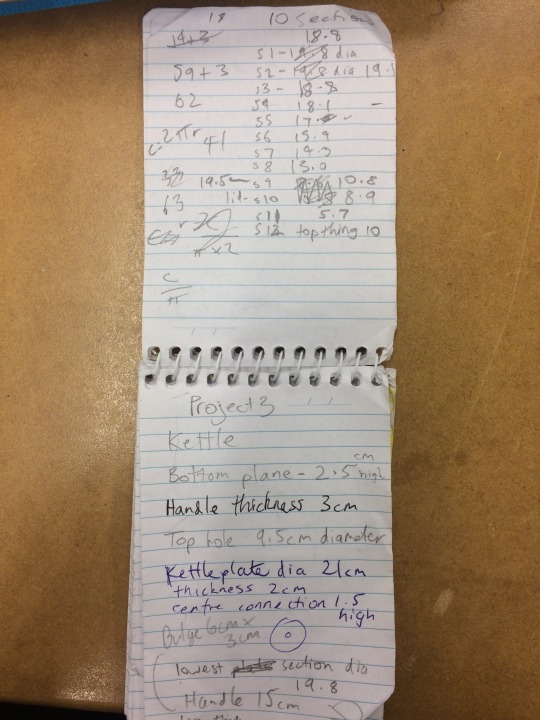 18 10 Sections
14+3 18.8
S1 - 19.8 dia
59+3 S2 - 19.8 dia 19.1
S3 - 18.8
62 S4 18.1 -
S5 17.
C=2πr 41 S6 15.9
S7 14.
S8 13.0
19.5 S9 10.8
63 lid - S10 8.9
S11 5.7
S12 top thing 10
π x 2
C
π
Project 3
Kettle
cm
Bottom plane - 2.5 high
Handle thickness 3cm
Top hole 9.5cm diameter
Kettle plate dia 21cm
thickness 2cm
centre connection 1.5
high
Bulge 6cm x
3cm
lowest plate section dia
19.8
Handle 15cm